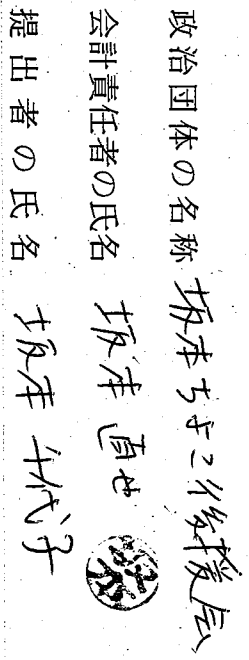 政治団体の名称 坂本ちよこ後援会
会計責任者の氏名 坂本 直也
提出者の氏名 坂本 千代子